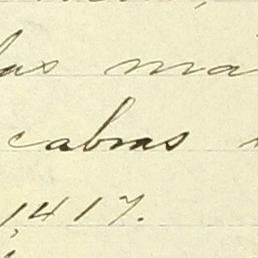 las ma
cabras
1417.